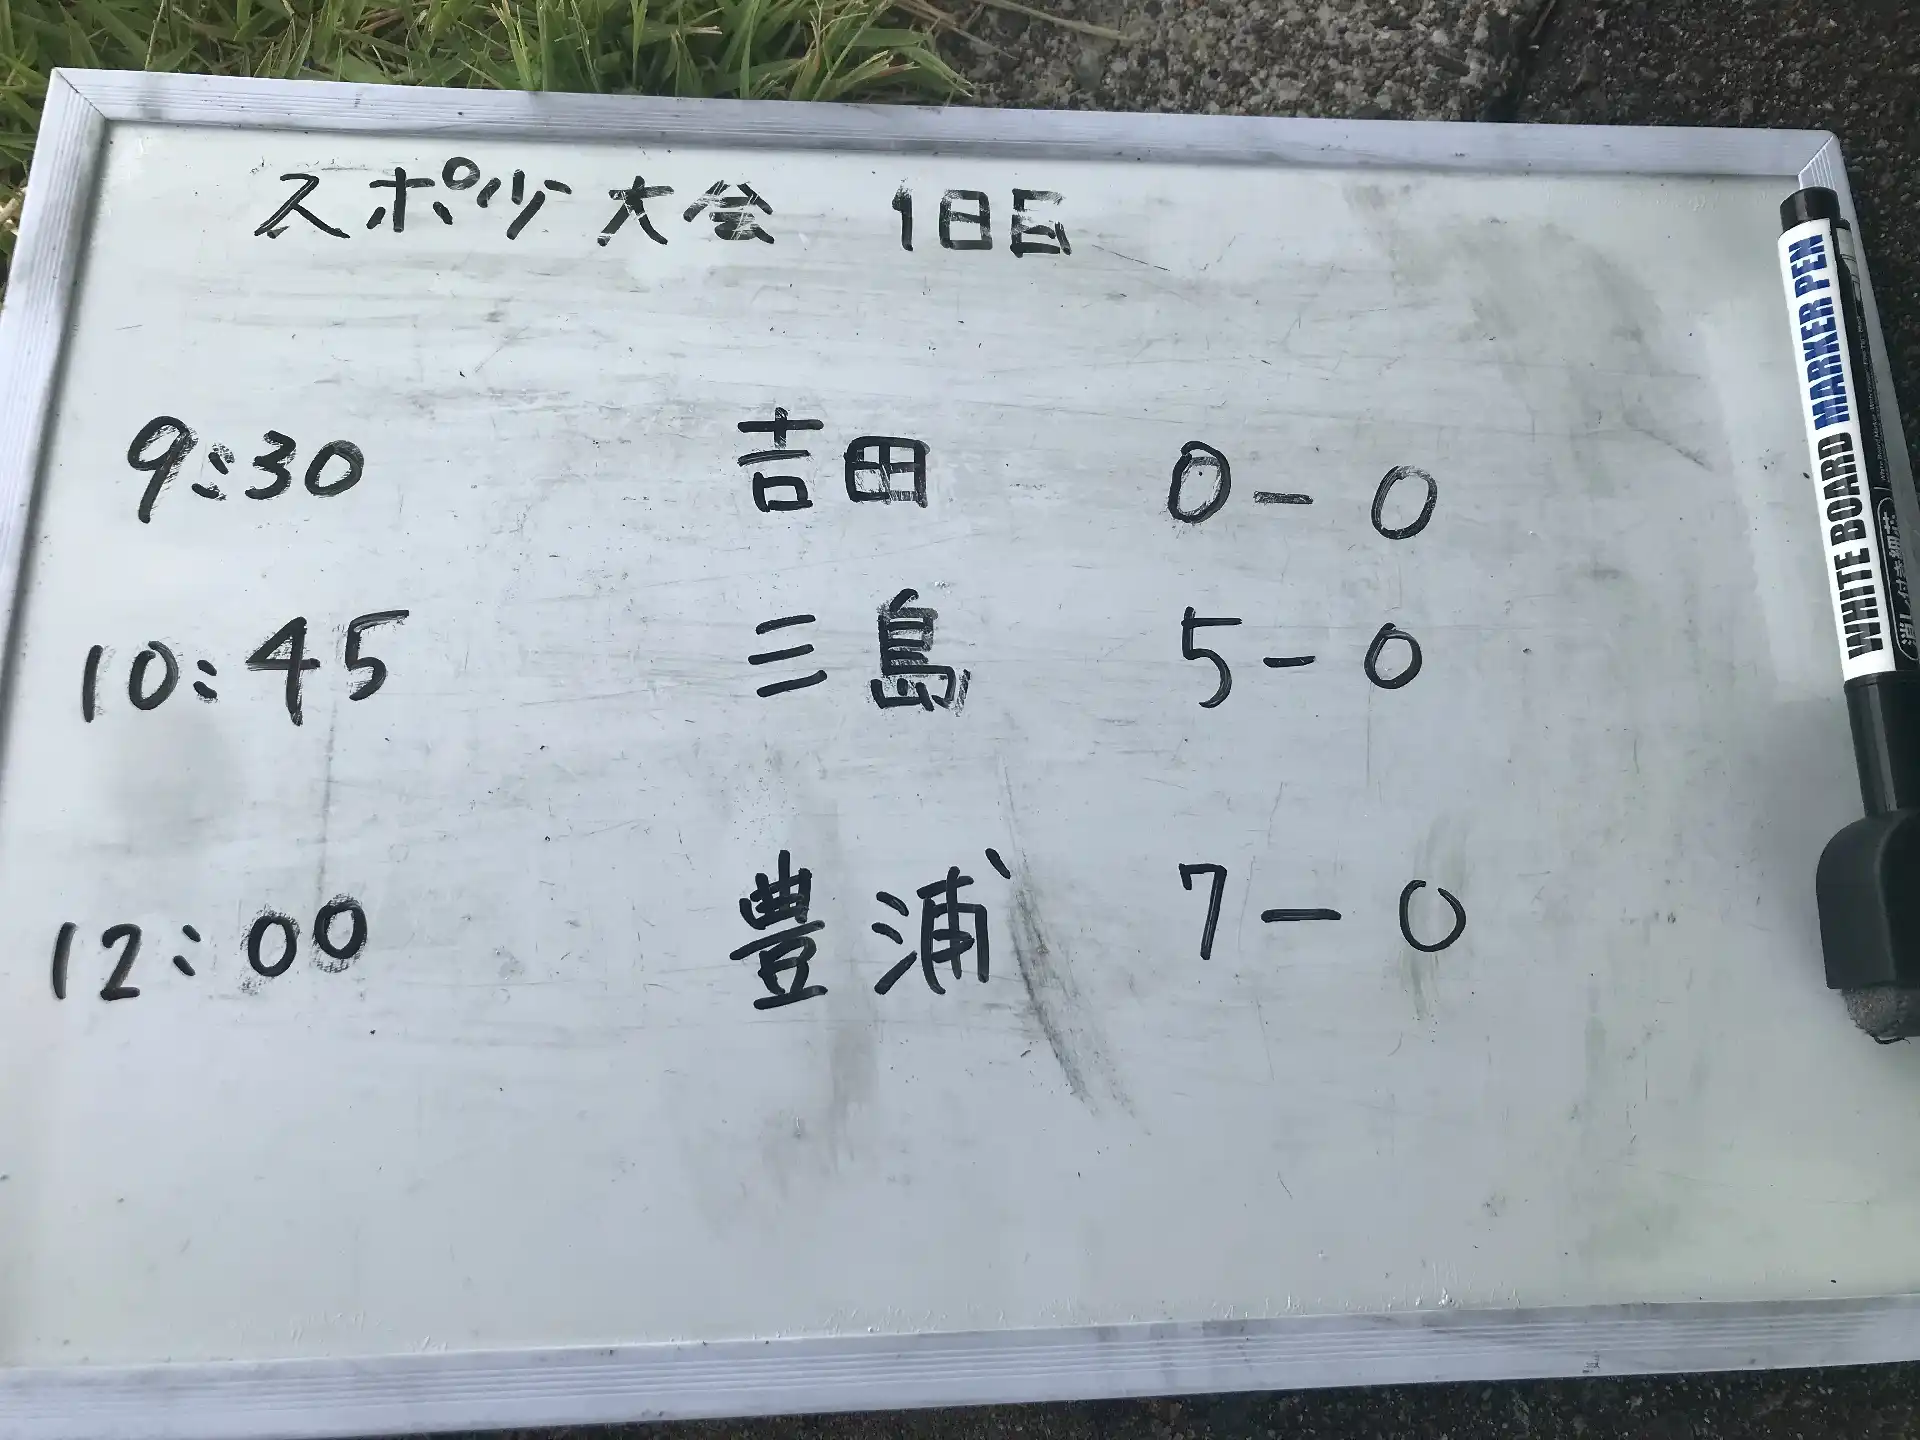 スポ少 大会 1日目
9:30 吉田 0-0
10:45 三島 5-0
12:00 豊浦 7-0
WHITE BOARD MARKER PEN